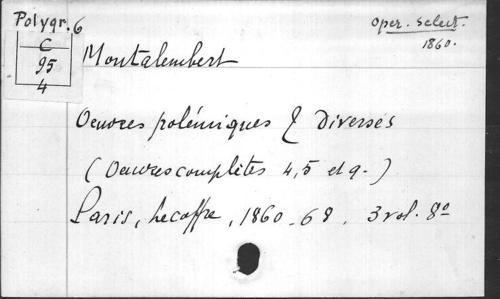 Polygr. 6
C
95
4
oper. select.
1860.
Montalembert
Oeuvres polémiques & diverses
(Oeuvres complètes 4, 5 et 9.)
Paris, Lecoffre, 1860-68. 3 vol. 8°